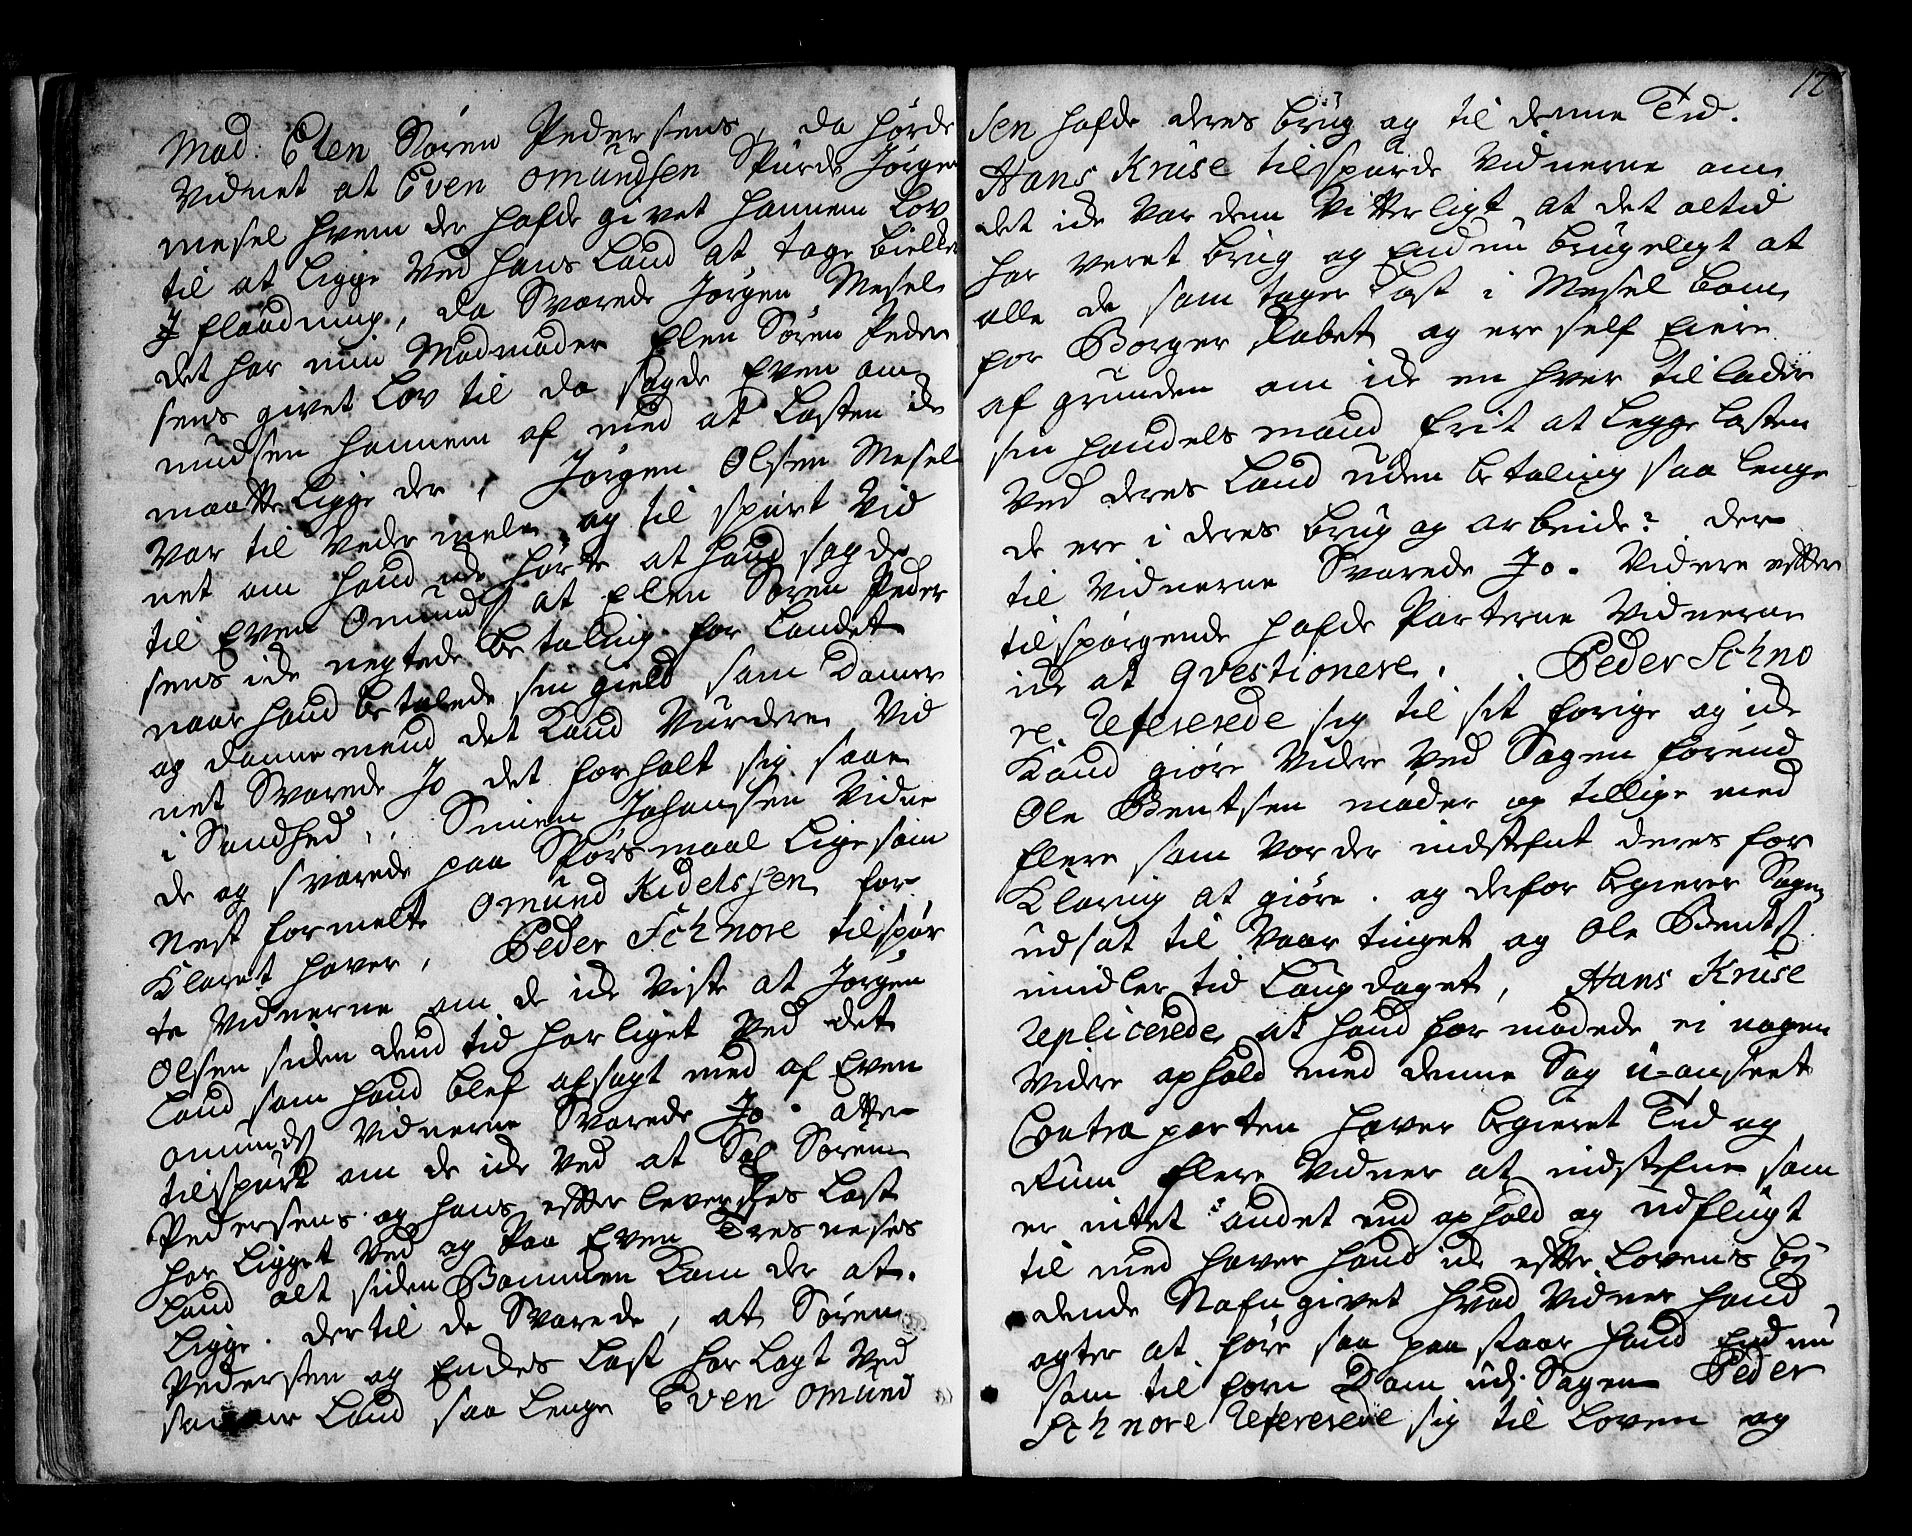 Mad: Elen Søren Pedersens, da hørde
Vidnet at Even Omundsen Spurde Jørgen
Mesel hvem der hafde givet hannem Lov
til at Ligge Ved hans Land at tage bielker
J flaadning, da Svarede Jørgen Mesel
det har min Madmoder Elen Søren Peder
sens givet Lov til da sagde Even Om
mundsen hannem af med at Lasten ide
maatte Ligge der, Jørgen Olsen Mesel
Var til Vedermæle og til spurt Vid
net om hand ide hørte at hand sagde
til Even Omunds: at Elen Søren Peder
sens ide negtede betaling for Landet
naar hand betalede sin gield som Danne
og Dannemend det Kand Vurdere Vid
net Svarede Jo det forholt sig saa
i Sandhed, Simen Johansen Vidne
de og svarede paa Spørsmaal Ligesom
Nest formelte Omund Kidelssen for
Klaret haver, Peder Schnore tilspør
te Vidnerne om de ide Viste at Jørgen
Olsen siden dend tid har liget Ved det
Land som hand blef afsagt med af Even
Omunds: Vidnerne Svarede Jo. atter
tilspurt om de ide Ved at Sal Søren
Pedersens og hans efterleverskes Last
har Ligget Ved og Paa Even Tresneses
Land alt siden Bommen Kom der at
Ligge. dertil de Svarede, at Søren
Pedersen og Enches Last har Lagt Ved
samme Land saa Lenge Even Omund
12
sen hafde deres brug og til denne Tid.
Hans Kruse tilspurde Vidnerne om
det ide Var dem Vitterligt at det altid
har Veret brug og Endnu brugeligt at
alle de som tager Last i Mesel bom
for Borgerskabet og ere self Eiere
af grunden om ide en hver tillader
sin handels mand frit at Legge Lasten
Ved deres Land uden betaling saa lenge
de ere i deres brug og arbeide? der
til Vidnerne Svarede Jo. Videre efter
tilspørgende hafde Parterne Vidnerne
ide at Qvestionere. Peder Schno
re Refererede sig til sit forige og ide
Kand giøre Videre Ved Sagen førend
Ole Bentsen møder og tillige med
flere som Vorder indstefnt deres for
Klaring at giøre. og derfor begierer Sagen
udsat til Vaar tinget og Ole Bents:
imidler tid Laugdaget, Hans Kruse
Replicerede at hand formodede ei nogen
Videre ophold med denne Sag u-anseet
Contraparten haver begieret Tid og
Rum flere Vidner at indstefne som
er intet andet end ophold og udflugt
til med haver hand ide efter Lovens by
dende Nafngivet hvad Vidner hand
agter at føre saa paa staar hand Endnu
som til forn Dom udj Sagen Peder
Schnore Refererede sig til Loven og